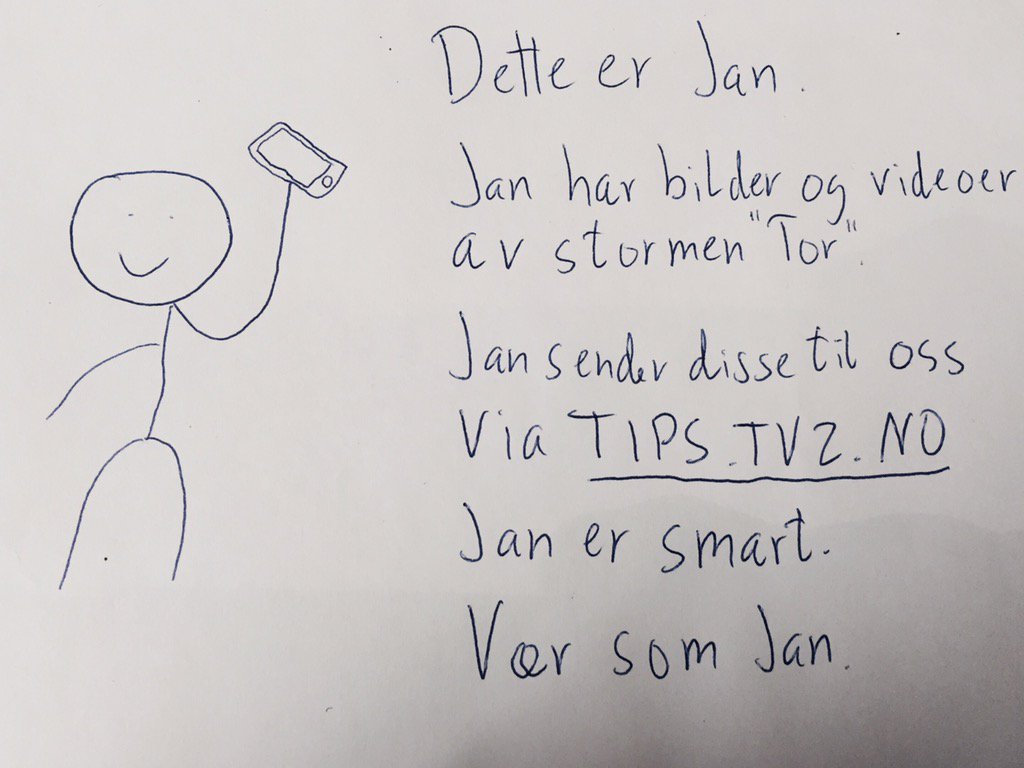 Dette er Jan.
Jan har bilder og videoer
av stormen "Tor".
Jan sender disse til oss
Via TIPS.TV2.NO
Jan er smart.
Vær som Jan.